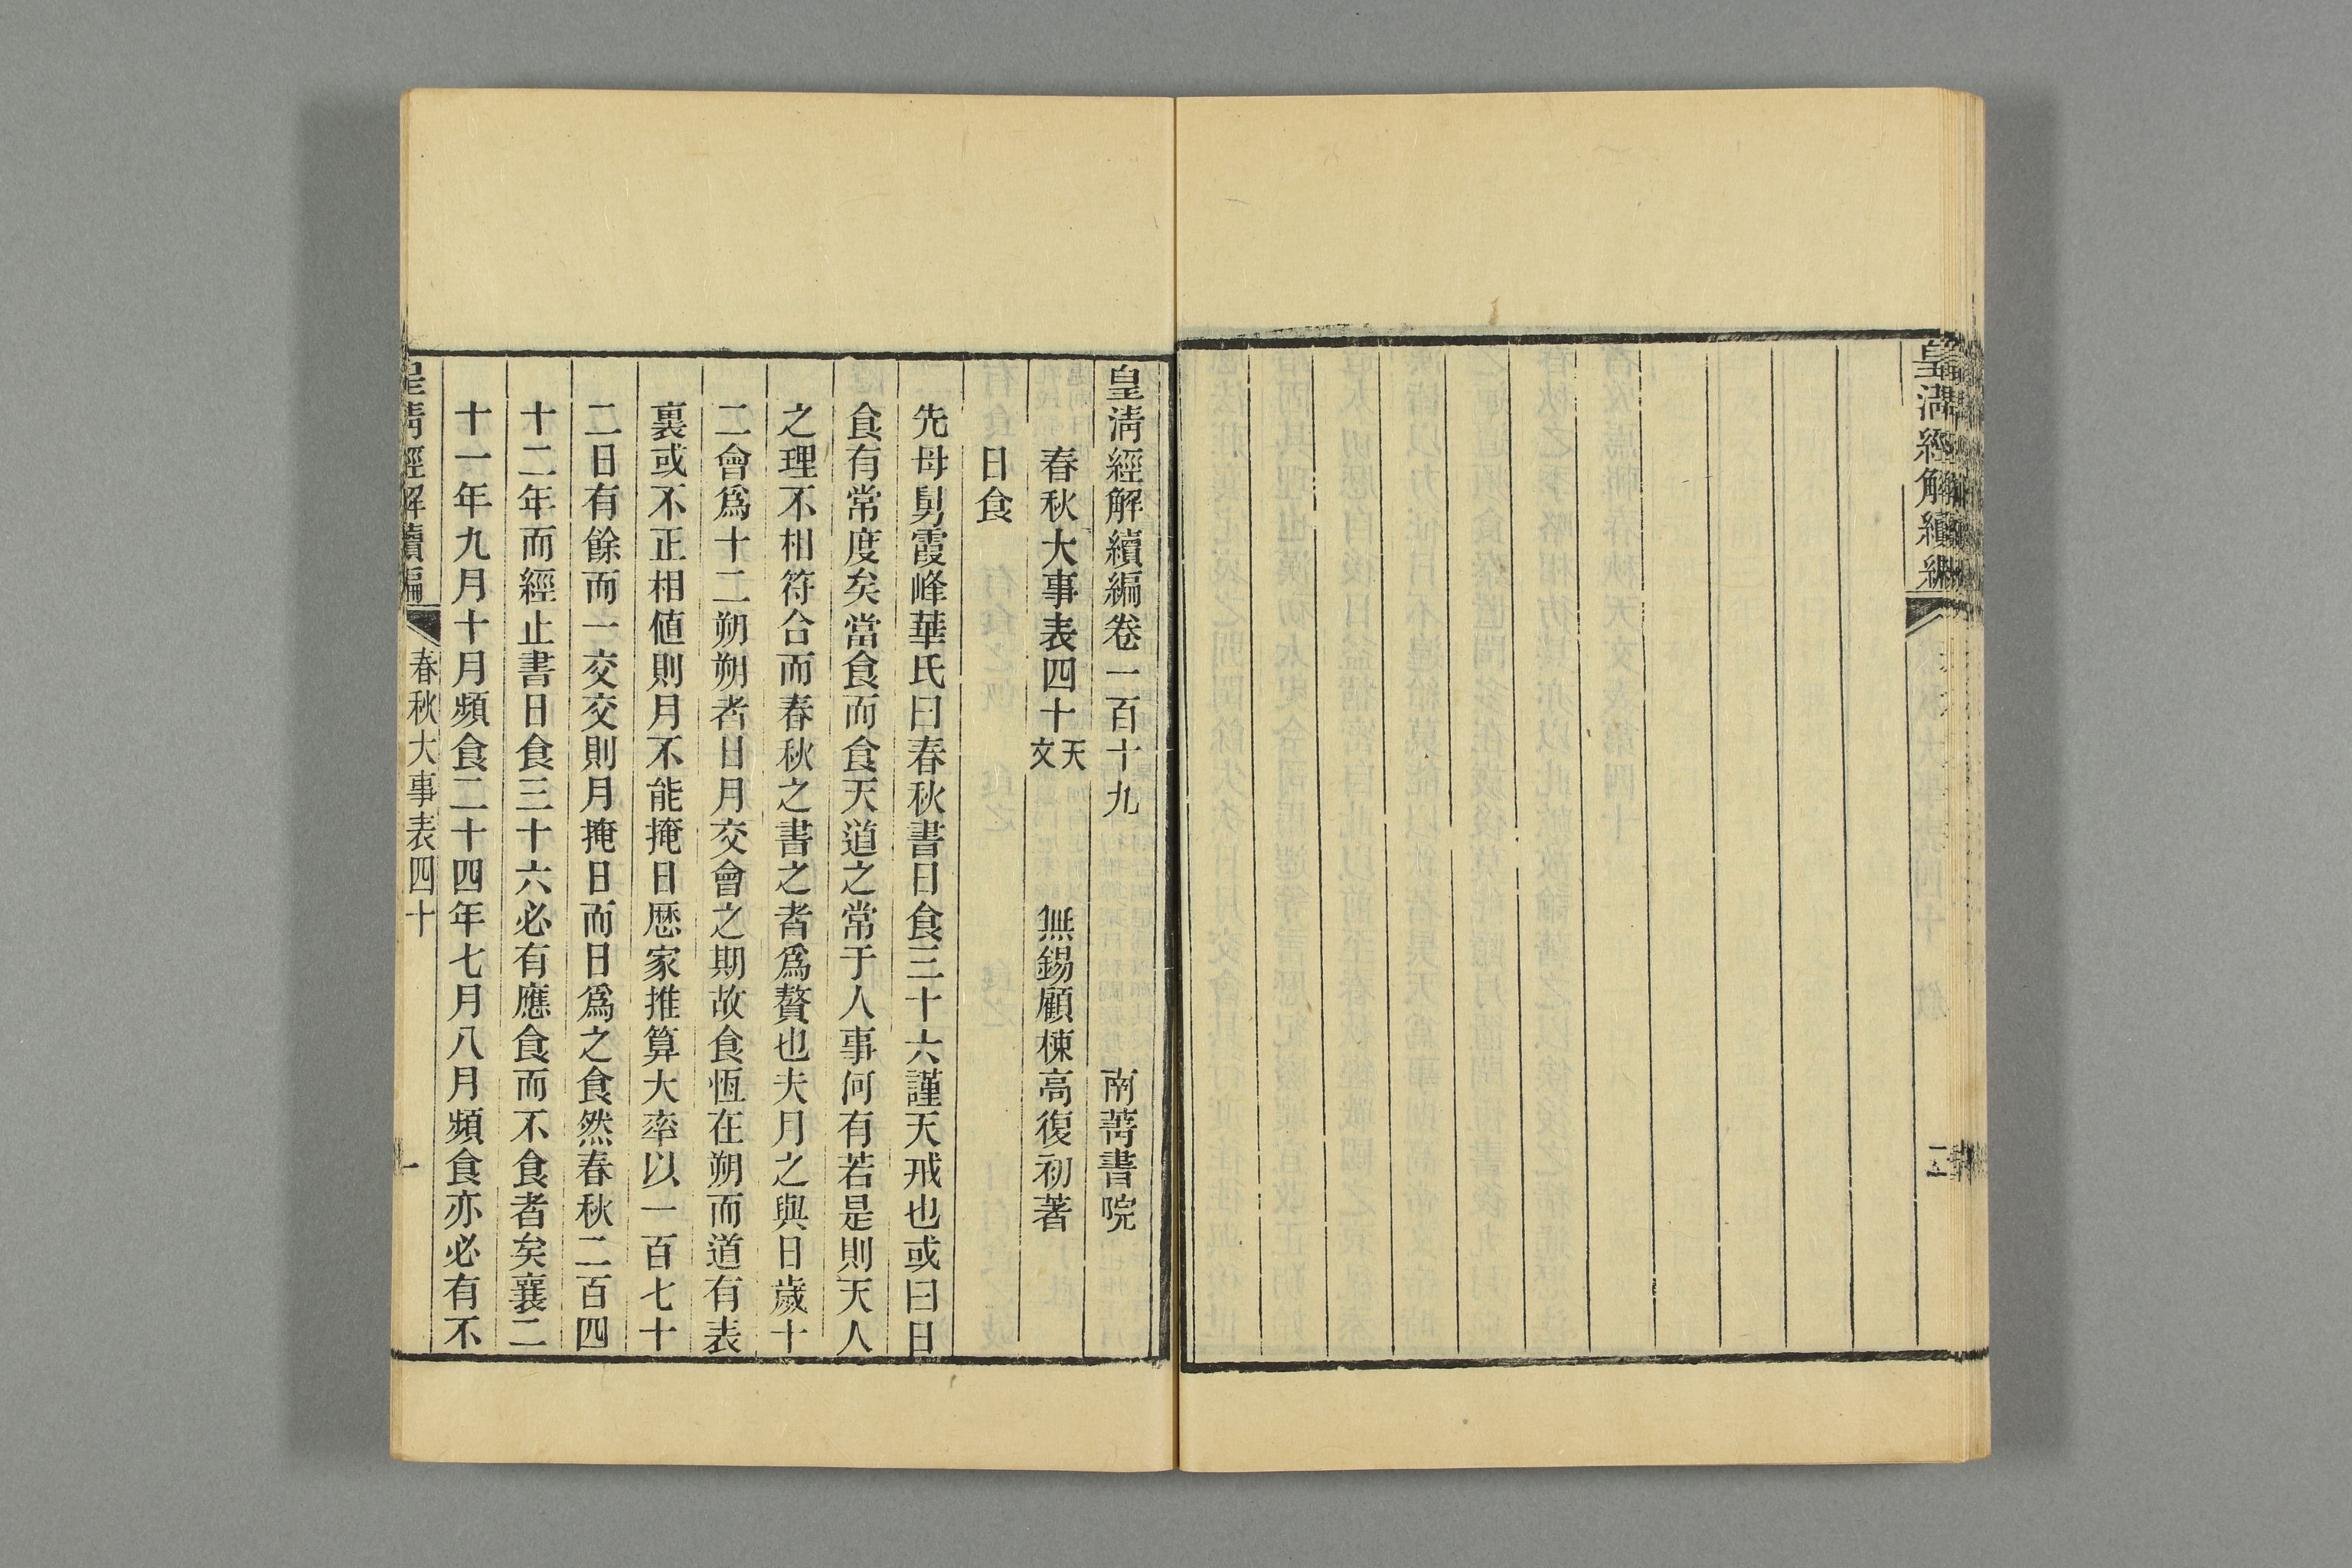 皇清經解續編
二
皇清經解續編卷一百十九 南菁書院
春秋大事表四十天文 無錫顧棟高復初著
日食
先母舅霞峰華氏曰春秋書日食三十六謹天戒也或曰日
食有常度矣當食而食天道之常于人事何有若是則天人
之理不相符合而春秋之書之者爲贅也夫月之與日歲十
二會爲十二朔朔者日月交會之期故食恆在朔而道有表
裏或不正相値則月不能掩日厯家推算大率以一百七十
二日有餘而一交交則月掩日而日爲之食然春秋二百四
十二年而經止書日食三十六必有應食而不食者矣襄二
十一年九月十月頻食二十四年七月八月頻食亦必有不
皇清經解續編 春秋大事表四十 一